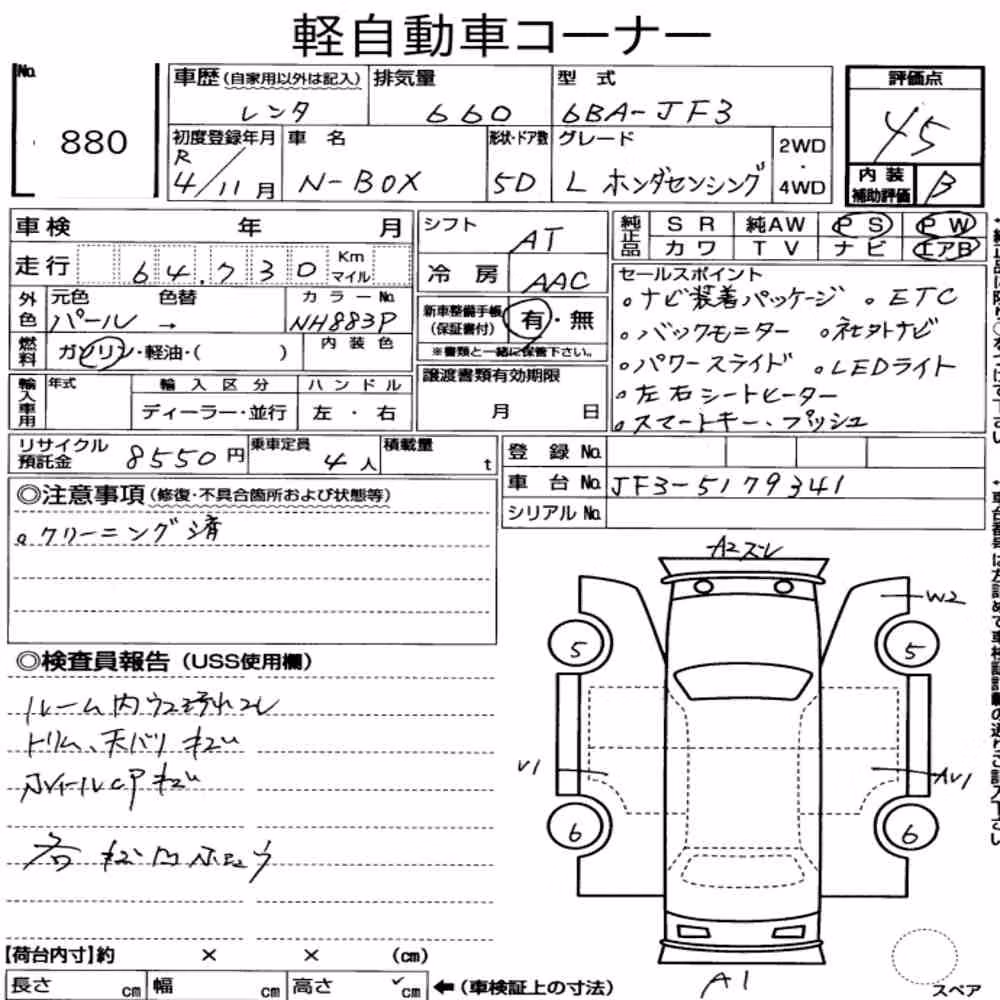 軽自動車コーナー
No. 880
車歴 (自家用以外は記入) レンタ
排気量 660
型式 6BA-JF3
評価点 4.5
初度登録年月 R 4/11月
車名 N-BOX
形状・ドア数 5D
グレード L ホンダセンシング
2WD・4WD
内装補助評価 B
車検 年 月
シフト AT
純正品 SR 純AW PS PW
カワ TV ナビ エアB
走行 64,730 Km マイル
冷房 AAC
セールスポイント
。ナビ装着パッケージ 。ETC
。バックモニター 。社外ナビ
。パワースライド 。LEDライト
。左右シートヒーター
。スマートキー、プッシュ
外色 元色 パール → 色替
カラーNo. NH883P
新車整備手帳(保証書付) 有・無
※書類と一緒に保管下さい。
燃料 ガソリン・軽油・( )
内装色
輸入車用 年式 輸入区分 ハンドル
ディーラー・並行 左・右
譲渡書類有効期限
月 日
リサイクル預託金 8550円
乗車定員 4人
積載量 t
登録No.
車台No. JF3-5179341
シリアルNo.
◎注意事項 (修復・不具合箇所および状態等)
。クリーニング済
◎検査員報告 (USS使用欄)
ルーム内
トリム、天バリ キズ
キズ
A2ズレ
W2
5 5
V1
AV1
6 6
A1
【荷台内寸】約 × × (cm)
長さ cm 幅 cm 高さ cm ←(車検証上の寸法)
スペア